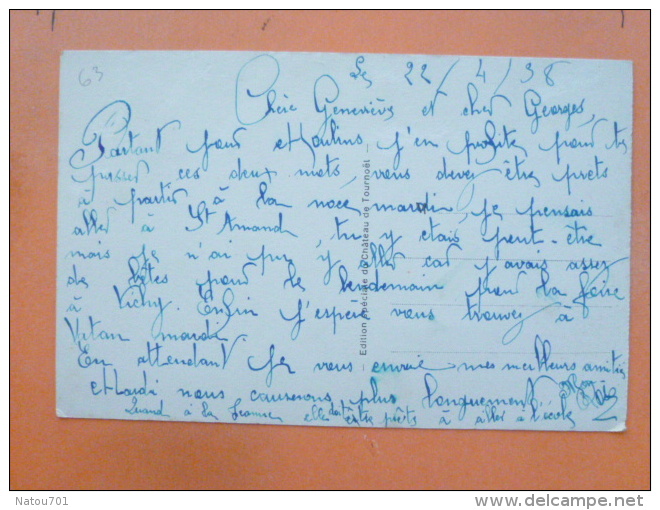 63
Le 22/4/38
Chère Geneviève et cher Georges,
Partant pour Moulins j'en profite pour te
passer ces deux mots, vous devez être prets
à partir à la noce mardi, je pensais
aller à St Amand, tu y étais peut-être
mais je n'ai pu y aller car j'avais assez
de bêtes pour le lendemain pour la foire
à Vichy. Enfin j'espère vous trouver à
mardi.
En attendant je vous envoie mes meilleurs amitiés
Mardi nous causerons plus longuement.
Quand à la elle doit être prêts à aller à l'école
Edition spéciale du Château de Tournoël
Natou701
delcampe.net